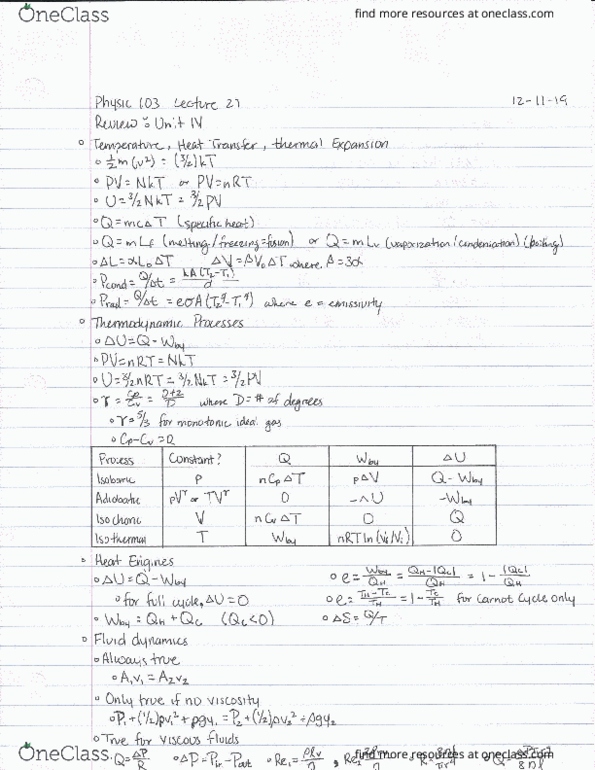 OneClass
find more resources at oneclass.com
Physic 103 Lecture 27 12-11-19
Review: Unit IV
◦ Temperature, Heat Transfer, thermal Expansion
◦ ½m(v²) = (3/2)kT
◦ PV = NkT or PV = nRT
◦ U = 3/2 NkT = 3/2 PV
◦ Q = mcΔT (specific heat)
◦ Q = mLf (melting/freezing = fusion) or Q = mLv (vaporization/condensation) (boiling)
◦ ΔL = αL₀ΔT ΔV = βV₀ΔT where, β = 3α
◦ Pcond = Q/Δt = kA(T₂-T₁)/d
◦ Prad = Q/Δt = eσA(T₂⁴-T₁⁴) where e = emissivity
◦ Thermodynamic Processes
◦ ΔU = Q - Wby
◦ PV = nRT = NkT
◦ U = 3/2 nRT = 3/2 NkT = 3/2 PV
◦ γ = Cp/Cv = D+2/D where D = # of degrees
◦ γ = 5/3 for monotonic ideal gas
◦ Cp - Cv = R
Process Constant? Q Wby ΔU
Isobaric P nCpΔT pΔV Q - Wby
Adiabatic pVʳ or TVʳ 0 -ΔU -Wby
Isochoric V nCvΔT 0 Q
Isothermal T Wby nRT ln(Vf/Vi) 0
◦ Heat Engines
◦ ΔU = Q - Wby ◦ e = Wby/QH = QH-|QC|/QH = 1 - |QC|/QH
◦ for full cycle, ΔU = 0 ◦ e = TH-TC/TH = 1 - TC/TH for Carnot Cycle only
◦ Wby = QH + QC (QC<0) ◦ ΔS = Q/T
◦ Fluid dynamics
◦ Always true
◦ A₁v₁ = A₂v₂
◦ Only true if no viscosity
◦ P₁ + (1/2)ρv₁² + ρgy₁ = P₂ + (1/2)ρv₂² + ρgy₂
◦ True for viscous fluids
◦ Q = ΔP/R ◦ ΔP = Pin - Pout
OneClass
find more resources at oneclass.com